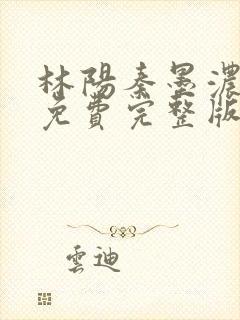 林陽秦墨濃
免費完整版
雲迪